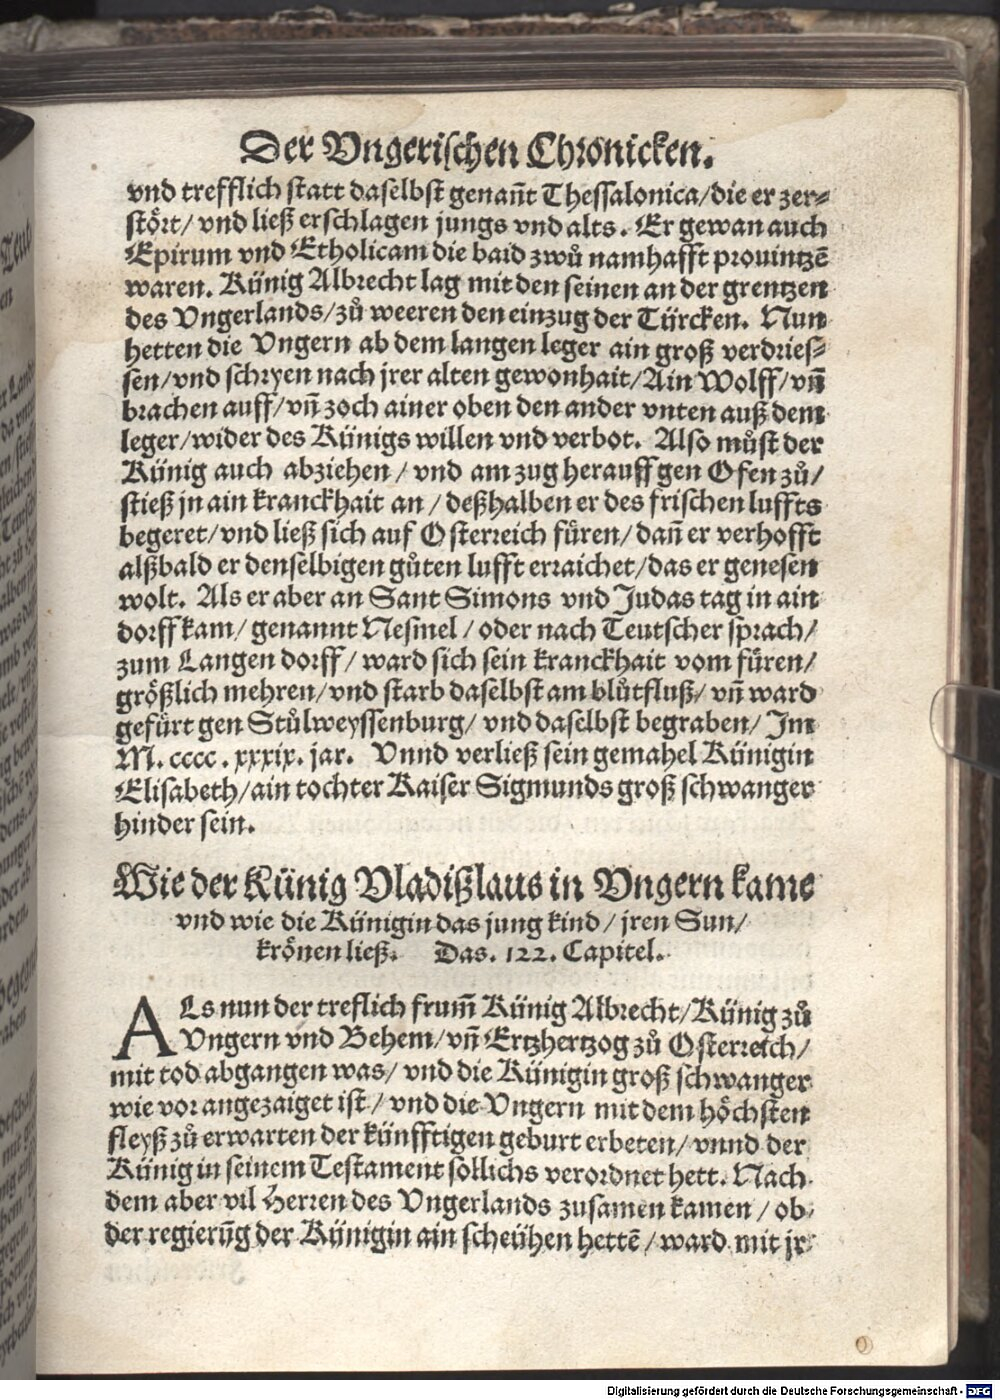 Der Vngerischen Chronicken.
vnd trefflich statt daselbst genañt Thessalonica/die er zer⸗
stört/ vnd ließ erschlagen jungs vnd alts. Er gewan auch
Epirum vnd Etholicam die baid zwů namhafft prouintzẽ
waren. Künig Albrecht lag mit den seinen an der grentzen
des Vngerlands/zů weeren den einzug der Türcken. Nun
hetten die Vngern ab dem langen leger ain groß verdries⸗
sen/vnd schryen nach jrer alten gewonhait/Ain Wolff/vñ
brachen auff/vñ zoch ainer oben den ander vnten auß dem
leger/wider des Künigs willen vnd verbot. Also můst der
Künig auch abziehen/ vnd am zug herauff gen Ofen zů/
stieß jn ain kranckhait an/ deßhalben er des frischen luffts
begeret/vnd ließ sich auf Osterreich füren/dañ er verhofft
alßbald er denselbigen gůten lufft erraichet/das er genesen
wolt. Als er aber an Sant Simons vnd Judas tag in ain
dorff kam/ genannt Nesmel/ oder nach Teutscher sprach/
zum Langen dorff/ ward sich sein kranckhait vom füren/
größlich mehren/vnd starb daselbst am blůtfluß/ vñ ward
gefürt gen Stůlweyssenburg/ vnd daselbst begraben/ Im
M. cccc. xxxix. jar. Vnnd verließ sein gemahel Künigin
Elisabeth/ain tochter Kaiser Sigmunds groß schwanger
hinder sein.
Wie der Künig Vladißlaus in Vngern kame
vnd wie die Künigin das jung kind/ jren Sun/
krönen ließ. Das. 122. Capitel.
ALs nun der treflich frum̃ Künig Albrecht/Künig zů
Vngern vnd Behem/vñ Ertzhertzog zů Osterreich/
mit tod abgangen was/ vnd die Künigin groß schwanger
wie vor angezaiget ist/ vnd die Vngern mit dem höchsten
fleyß zů erwarten der künfftigen geburt erbeten/ vnnd der
Künig in seinem Testament sollichs verordnet hett. Nach
dem aber vil Herren des Vngerlands zusamen kamen/ ob
der regierũg der Künigin ain scheühen hettẽ/ ward mit jr
Digitalisierung gefördert durch die Deutsche Forschungsgemeinschaft - DFG